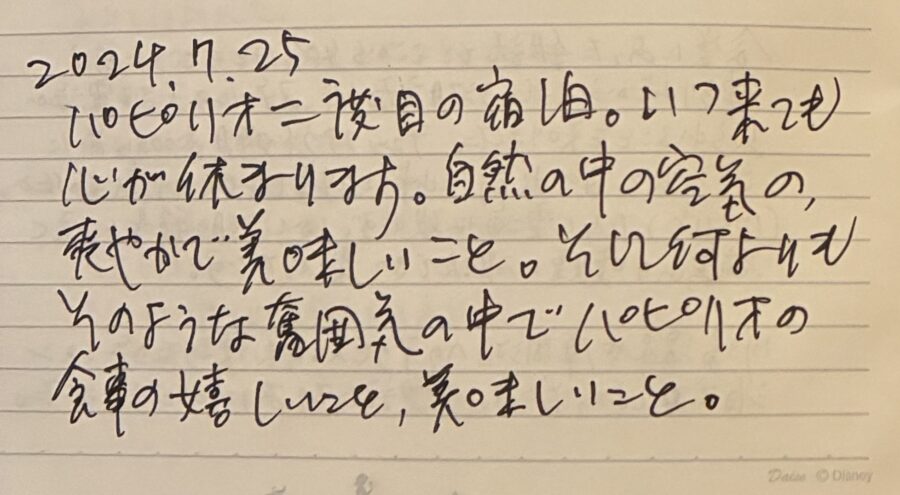 2024.7.25
パピリオ二度目の宿泊。いつ来ても
心が休まります。自然の中の空気の,
爽やかで美味しいこと。そして何よりも
そのような雰囲気の中でパピリオの
食事の嬉しいこと,美味しいこと。
Daisy © Disney